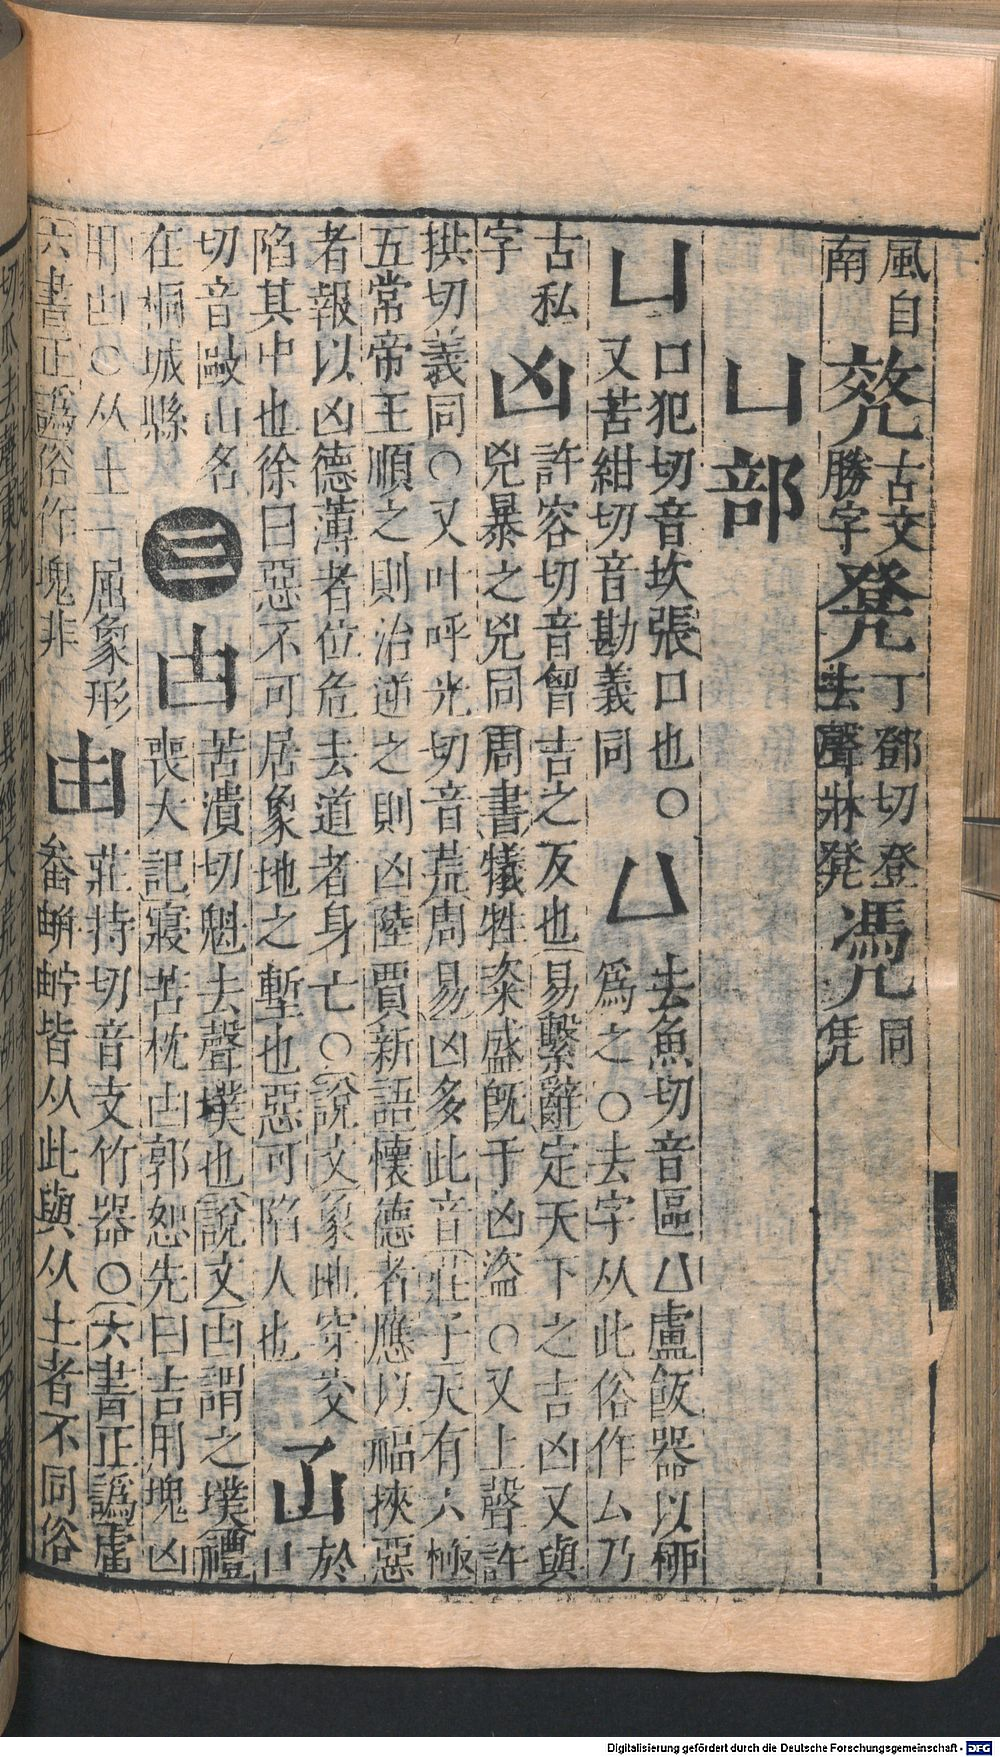 風自南 古文勝字 凳 丁鄧切登去聲牀凳 凴 同凭
凵部
凵 口犯切音坎張口也○又苦紺切音勘義同 𠙴 去魚切音區凵盧飯器以柳爲之○去字从此俗作厶乃
古私字 凶 許容切音胷吉之反也易繫辭定天下之吉凶又與兇暴之兇同周書犧牲粢盛旣于凶盜○又上聲許
拱切義同○又叶呼光切音荒周易凶多此音莊子天有六極五常帝王順之則治逆之則凶陸賈新語懷德者應以福挾惡
者報以凶德薄者位危去道者身亡○說文象地穿交陷其中也徐曰惡不可居象地之塹也惡可陷人也 於口
切音毆山名在桐城縣 三 凷 苦潰切魁去聲墣也說文凷謂之墣禮喪大記寢苫枕凷郭恕先曰吉用塊凶
用凷○从土一屈象形六書正譌俗作塊非 甾 莊持切音支竹器○六書正譌盧畚皆从此與从土者不同俗
Digitalisierung gefördert durch die Deutsche Forschungsgemeinschaft - DFG